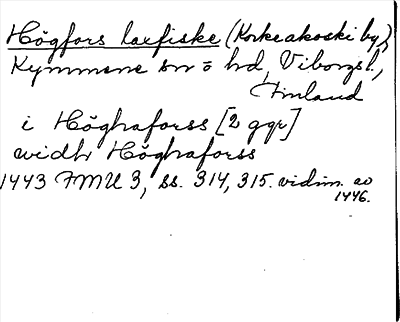 Högfors laxfiske (Korkeakoski by),
Kymmene sn o hd, Viborgsl.,
Finland
i Höghaforss [2 ggr]
widh Höghaforss
1443 FMU 3, ss. 314, 315. vidim. av
1446.